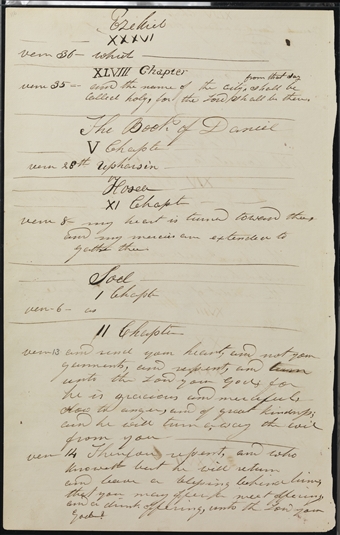 Ezekiel
XXXVI
verse 36 - which
XLVIII Chapter
from that day
verse 35 - and the name of the city, shall be
called holy, for the Lord shall be there
The Book of Daniel
V Chapte
verse 28th Upharsin
Hosea
XI Chapt
verse 8 - my heart is turned toward thee
and my mercies are extended to
gather thee
Joel
I Chapt
verse 6 - as
II Chapter
verse 13 and rend your heart, and not your
garments, and repent, and turn
unto the Lord your God, for
he is gracious and merciful
slow to anger, and of great kindness,
and he will turn away the evil
from you
verse 14 Therefore repent, and who
knoweth but he will return
and leave a blessing behind him,
that you may offer a meat offering
and a drink offering, unto the Lord your
God